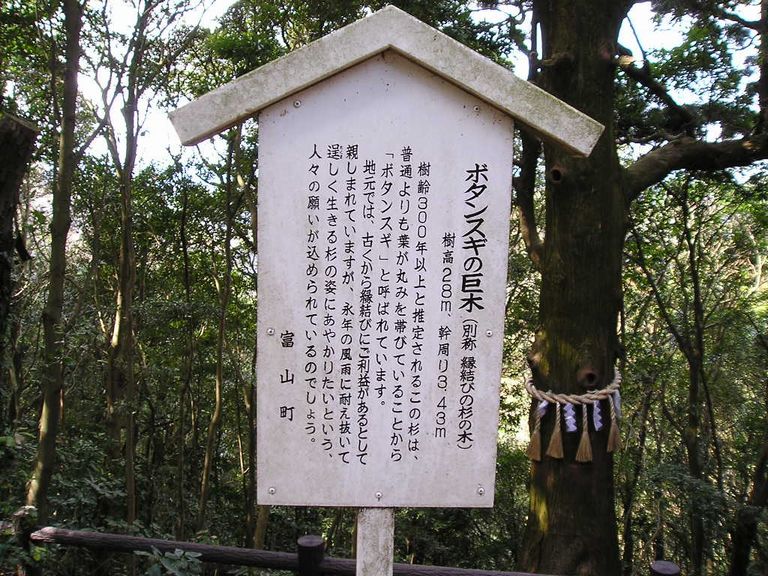 ボタンスギの巨木（別称 縁結びの杉の木）
樹高28m、幹周り3.43m
樹齢300年以上と推定されるこの杉は、
普通よりも葉が丸みを帯びていることから
「ボタンスギ」と呼ばれています。
地元では、古くから縁結びにご利益があるとして
親しまれていますが、永年の風雨に耐え抜いて
逞しく生きる杉の姿にあやかりたいという、
人々の願いが込められているのでしょう。
富山町